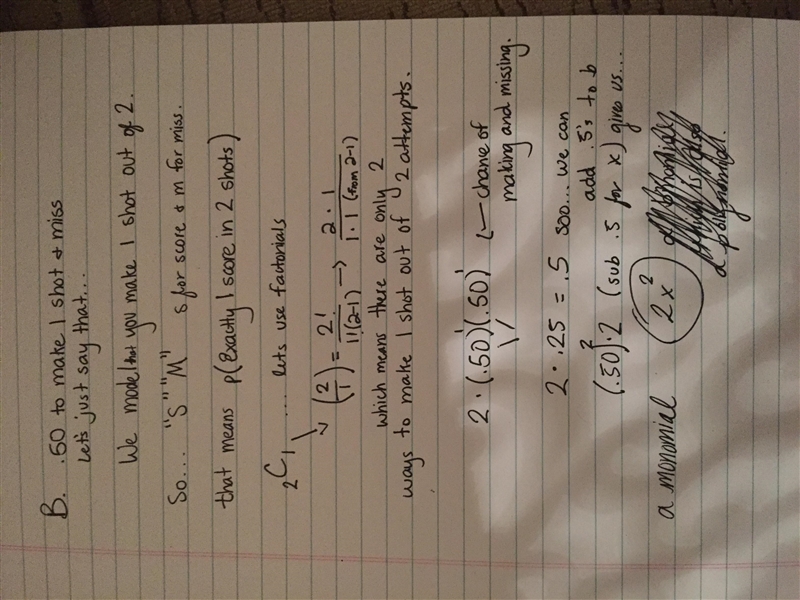 B. .50 to make 1 shot & miss
Let's just say that...
We model that you make 1 shot out of 2.
So... "S" "M" s for score & m for miss.
that means p(Exactly 1 score in 2 shots)
₂C₁ ... lets use factorials
↘ (2/1) = 2!/1!(2-1) → 2 · 1/1 · 1 (from 2-1)
which means there are only 2
ways to make 1 shot out of 2 attempts.
2 · (.50)¹(.50)¹ ← chance of
making and missing.
2 · .25 = .5 soo... we can
add .5's to b
(.50)² · 2 (sub .5 for x) gives us...
a monomial 2x²
a polynomial.